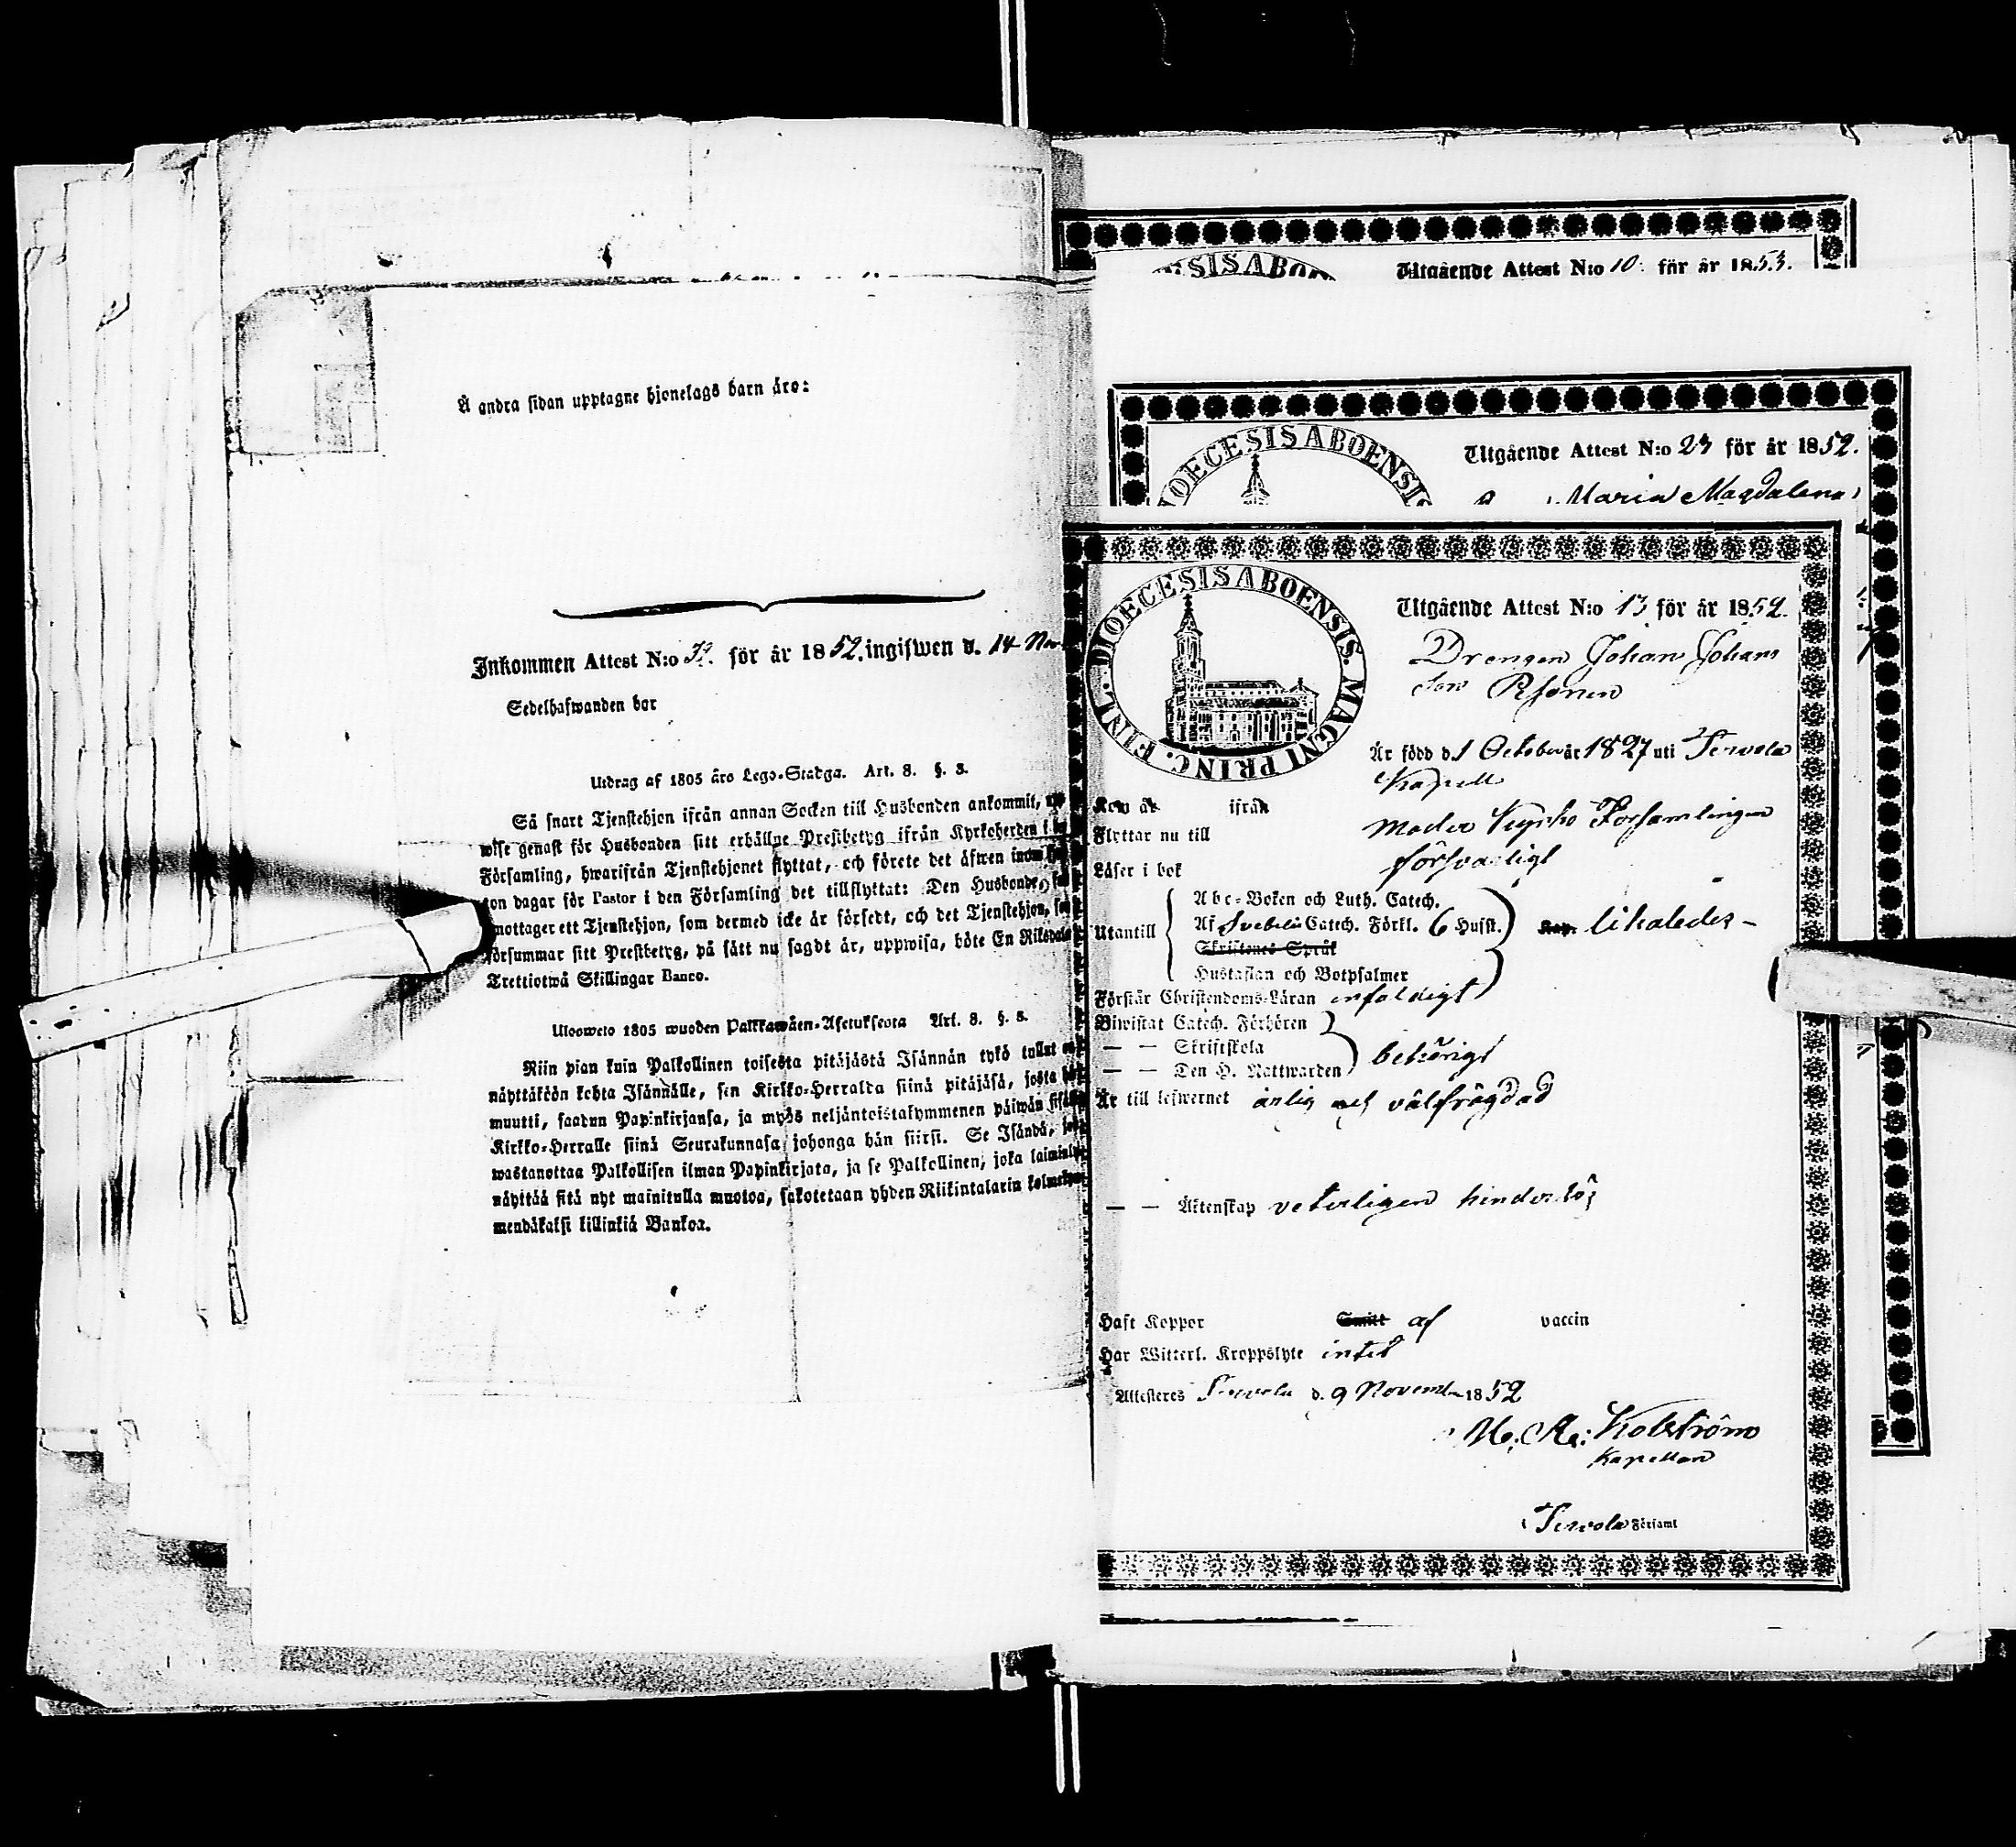 Å andra sidan upptagne hjonelags barn äro:
Inkommen Attest N:o för år 1852. ingifwen d. 14 Nov
Sedelhafwanden bor
Utdrag af 1805 års Lego-Stadga. Art. 8. §. 5.
Så snart Tjenstehjon ifrån annan Socken till Husbonden ankommit,
wise genast för Husbonden sitt erhållne Prestbetyg ifrån Kyrkoherden i
Församling, hwarifrån Tjenstehjonet flyttat, och förete det äfwen inom
ton dagar för Pastor i den Församling det tillflyttat: Den Husbonde,
mottager ett Tjenstehjon, som dermed icke är försedt, och det Tjenstehjon,
försummar sitt Prestbetyg, på sätt nu sagdt är, uppwisa, böte En Riksdaler
Trettiotwå Skillingar Banco.
Ulosweto 1805 wuoden Palkkawäen-Asetuksesta Art. 8. §. 5.
Niin pian kuin Palkollinen toisesta pitäjästä Isännän tykö tullut
näyttäköön kohta Isännälle, sen Kirkko-Herralda siinä pitäjäsä, josta
muutti, saadun Papinkirjansa, ja myös neljäntoistakymmenen päiwän sisällä
Kirkko-Herralle siinä Seurakunnasa johonga hän siirsi. Se Isändä,
wastanottaa Palkollisen ilman Papinkirjata, ja se Palkollinen, joka
näyttää sitä nyt mainitulla muotoa, sakotetaan yhden Riikintalarin
mendäkaksi killinkiä Bankoa.
SIS ABOEN
Utgående Attest N:o 10. för år 1853.
DIOECESIS ABOENSIS
Utgående Attest N:o 23 för år 1852.
Maria Magdalena
DIOECESIS ABOENSIS. MAGNI PRINC. FINL.
Utgående Attest N:o 13 för år 1852.
Drengen Johan Johans
son
Är född d. 1 October år 1827 uti Tervola
Kapell
Kom år ifrån
Flyttar nu till Moder Kyrko Församlingen
Läser i bok försvarligt
Utantill
Abc-Boken och Luth. Catech.
Af Svebelii Catech. Förkl. 6 Husst.
likaledes -
Skriftenes Språk
Hustaflan och Botpsalmer
Förstår Christendoms-Läran enfaldigt
Biwistat Catech. Förhören
— — Skriftskola
behörigt
— — Den H. Nattwarden
Är till lefwernet ärlig och välfrägdad
— — Äktenskap veterligen hinderlös
Haft Koppor Smitt af vaccin
Har Witterl. Kroppslyte intet
Attesteres Tervola d. 9 Novemb 1852
Kapellan
Tervola Församl